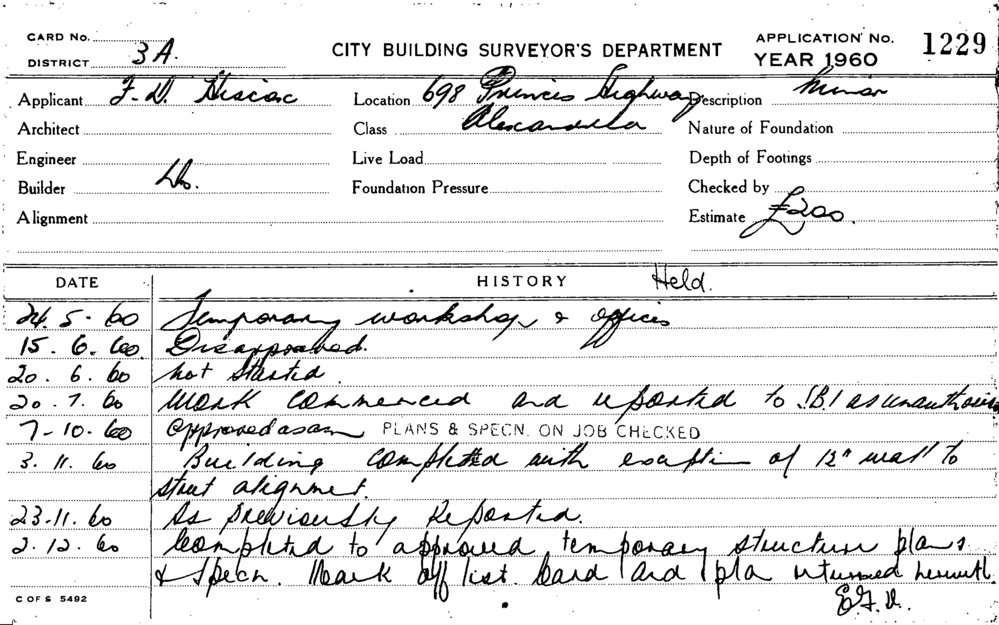 CARD No.
DISTRICT 3A.
CITY BUILDING SURVEYOR'S DEPARTMENT
APPLICATION No. 1229
YEAR 1960
Applicant F. D. Hiscox
Location 698 Princes Highway
Description Minor
Architect
Class Alexandria
Nature of Foundation
Engineer
Live Load
Depth of Footings
Builder Do.
Foundation Pressure
Checked by
Alignment
Estimate £200.
DATE HISTORY Held.
24.5.60 Temporary workshop & offices
15.6.60 Disapproved.
20.6.60 Not started.
20.7.60 Work commenced and reported to as unauthorised
7-10-60 Approved PLANS & SPECN. ON JOB CHECKED
3.11.60 Building completed with exception of 12" wall to
street alignment.
23-11.60 As previously reported.
2.12.60 Completed to approved temporary structure plans
& specn. Mark off list. Card and plan returned herewith.
C OF S 5492